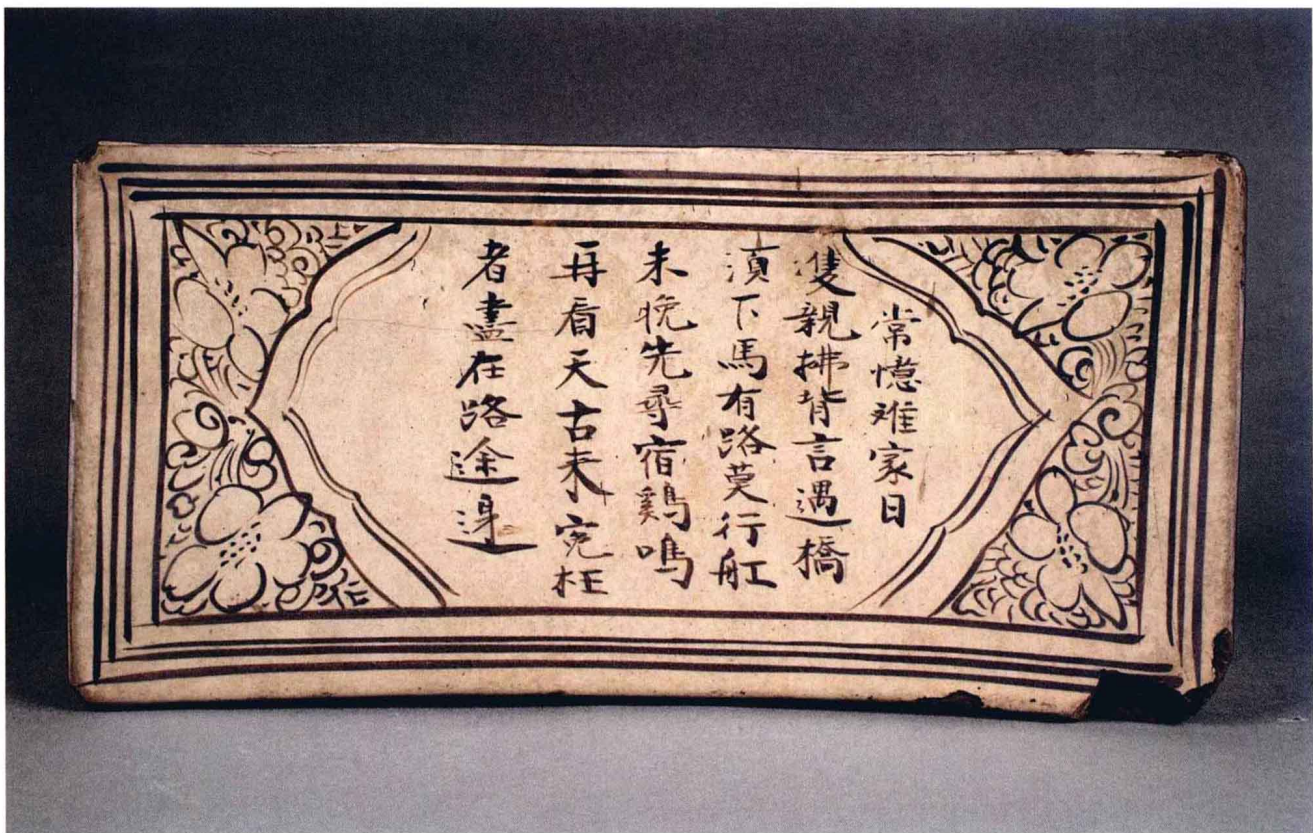 常憶離家日
雙親拂背言遇橋
湏下馬有路莫行舡
未晚先尋宿鷄鳴
再看天古来寃枉
者盡在路途邊